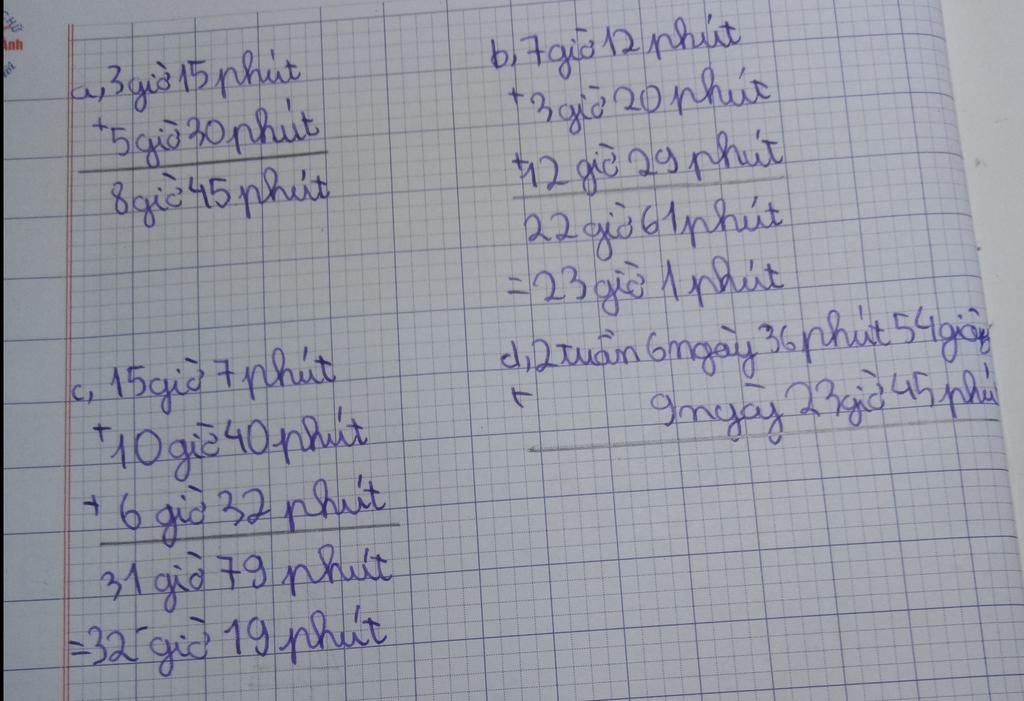 a, 3 giờ 15 phút
+ 5 giờ 30 phút
8 giờ 45 phút
b, 7 giờ 12 phút
+ 3 giờ 20 phút
+ 12 giờ 29 phút
22 giờ 61 phút
= 23 giờ 1 phút
c, 15 giờ 7 phút
+ 10 giờ 40 phút
+ 6 giờ 32 phút
31 giờ 79 phút
= 32 giờ 19 phút
d, 2 tuần 6 ngày 36 phút 54 giây
+ 9 ngày 23 giờ 45 phú